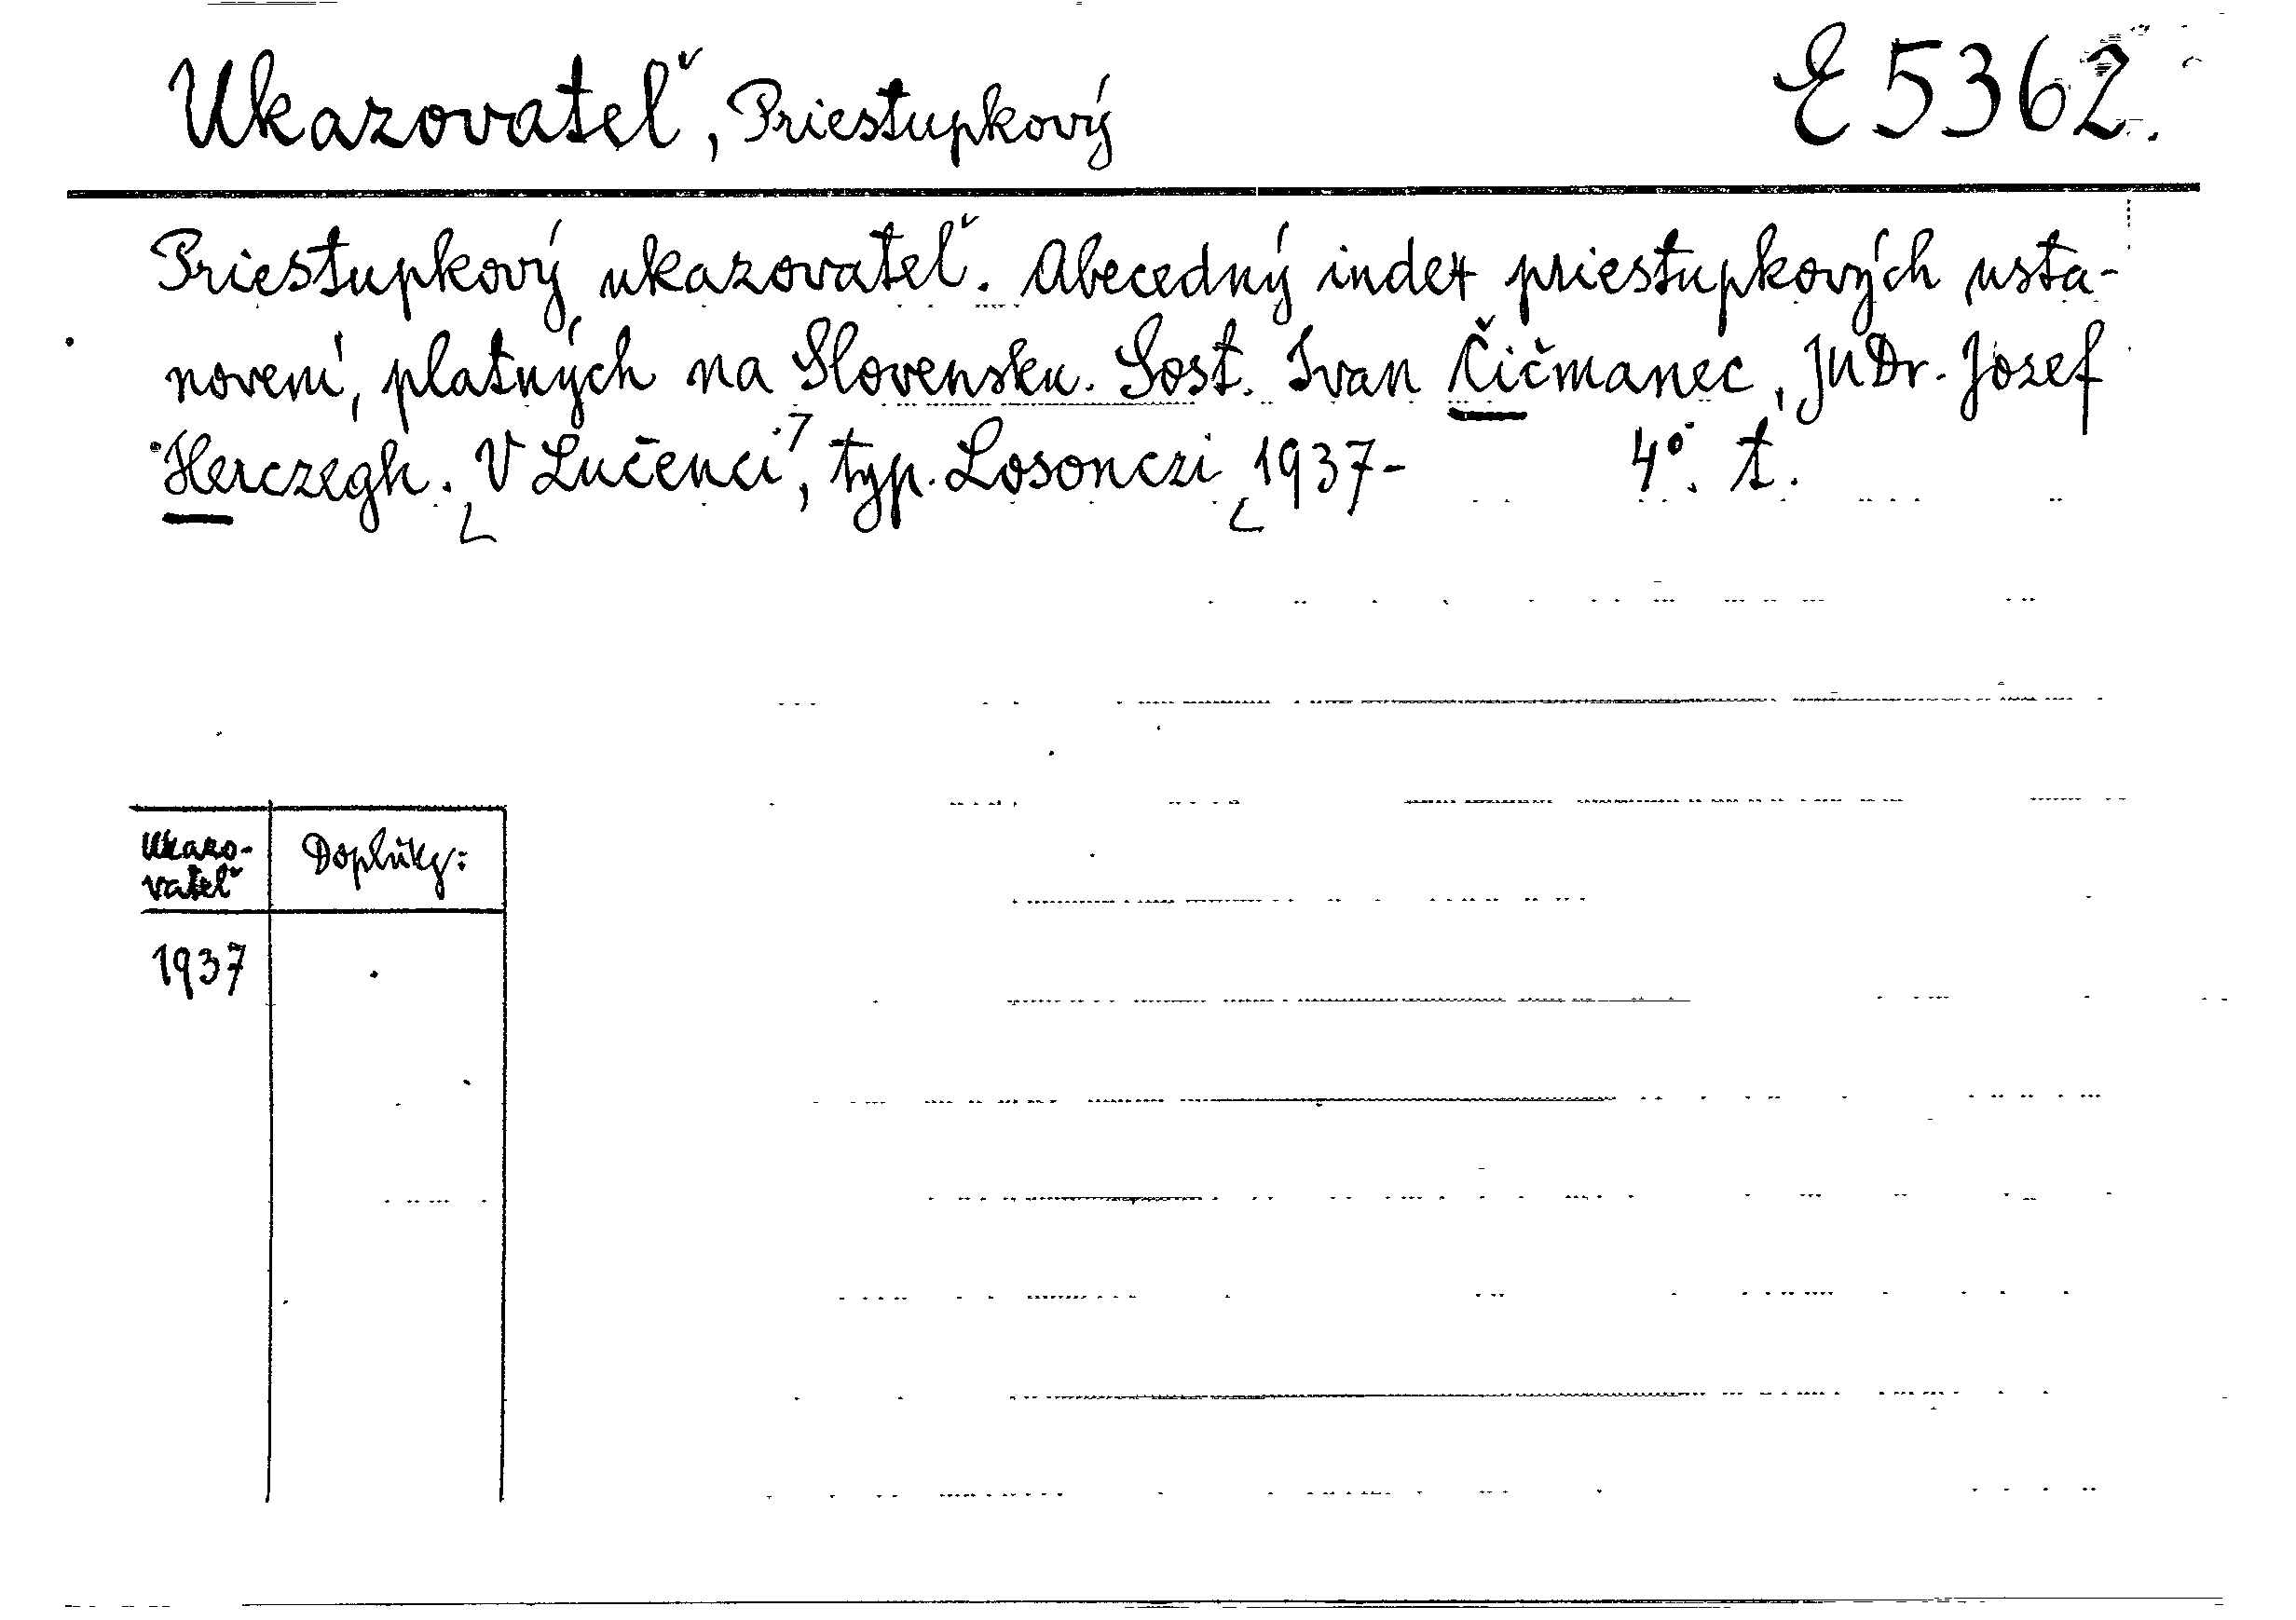 Ukazovateľ, Priestupkový
E 5362.
Priestupkový ukazovateľ. Abecedný index priestupkových usta-
novení, platných na Slovensku. Sost. Ivan Čičmanec, JUDr. Jozef
Herczegh. V Lučenci, typ. Losonczi 1937-   4°. t.
Ukazo-
vateľ
Doplňky:
1937